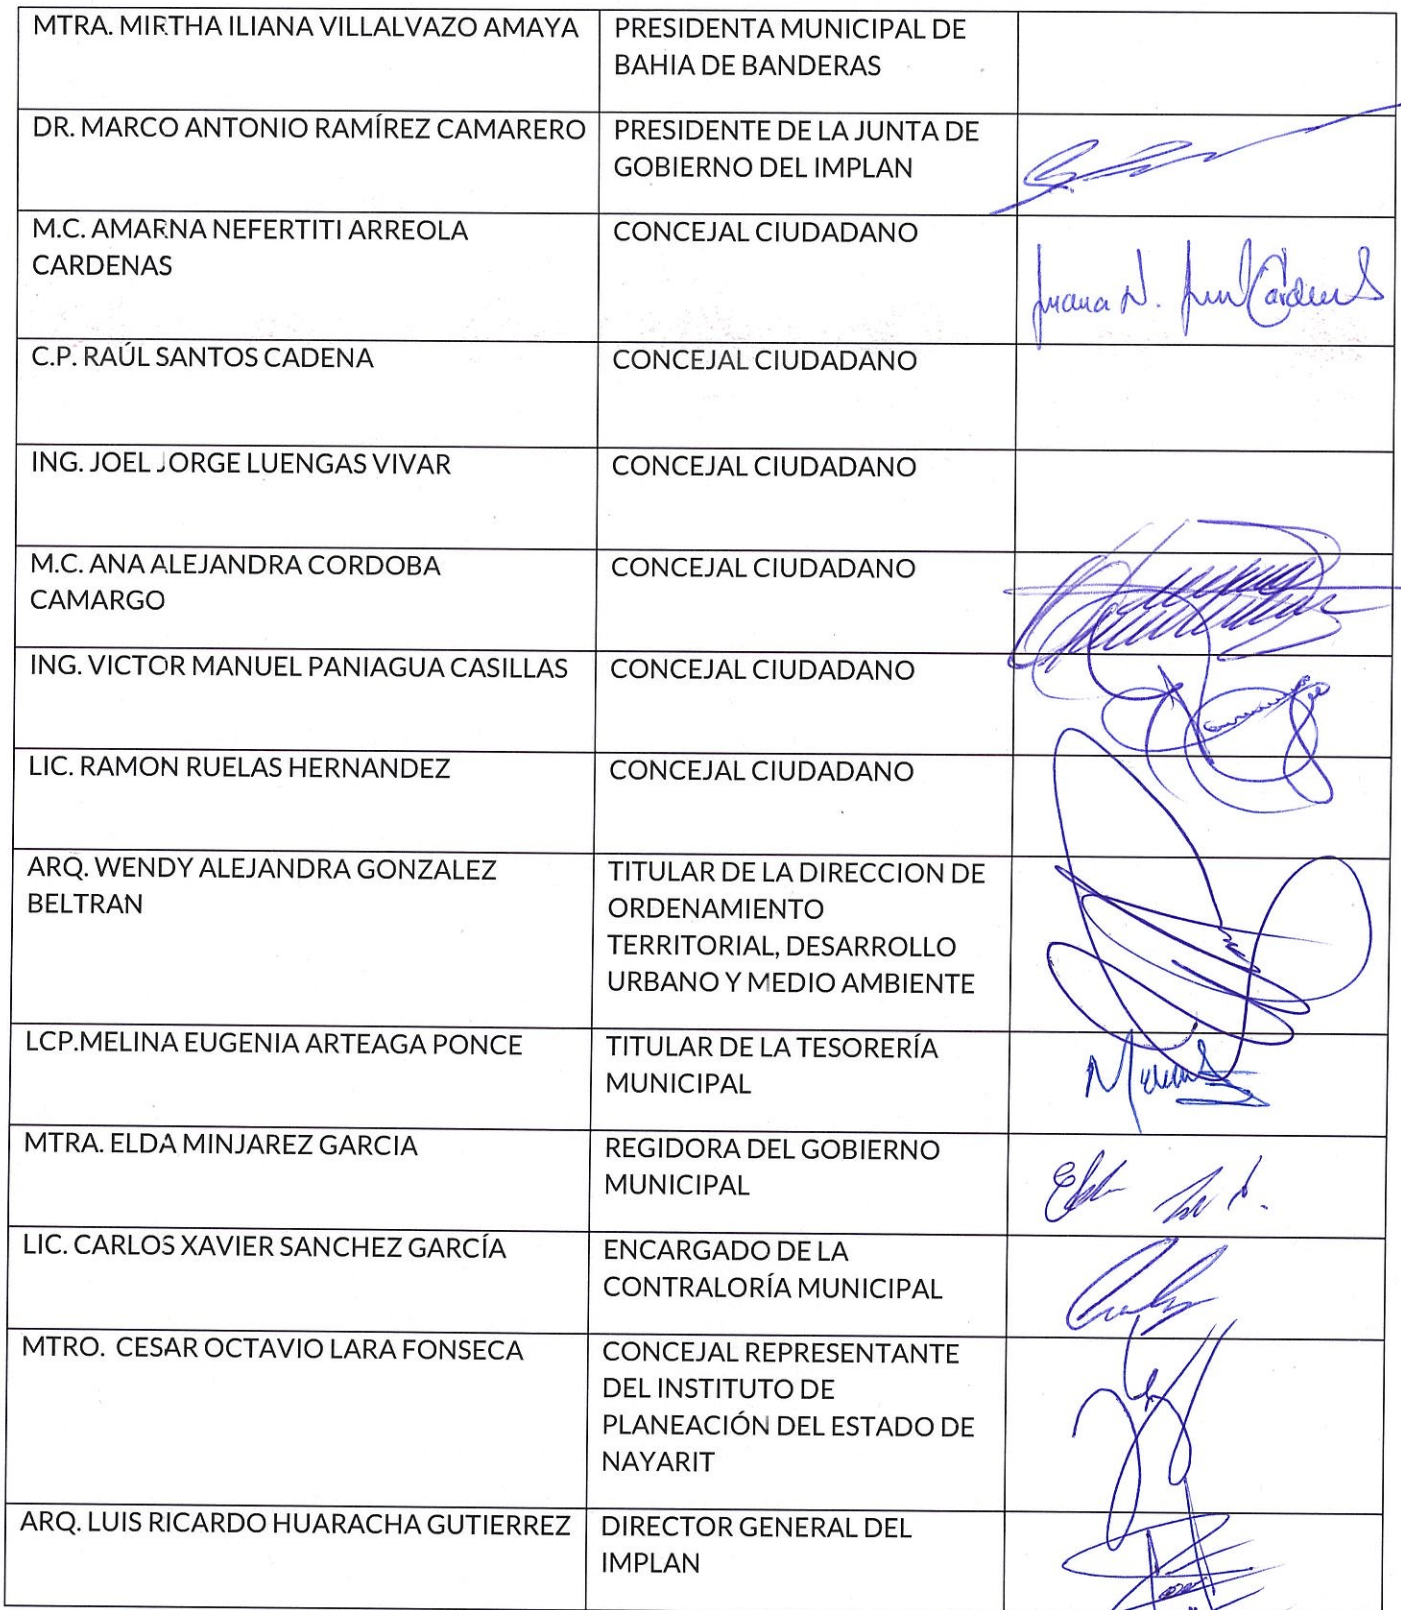 MTRA. MIRTHA ILIANA VILLALVAZO AMAYA
PRESIDENTA MUNICIPAL DE
BAHIA DE BANDERAS
DR. MARCO ANTONIO RAMÍREZ CAMARERO
PRESIDENTE DE LA JUNTA DE
GOBIERNO DEL IMPLAN
M.C. AMARNA NEFERTITI ARREOLA
CARDENAS
CONCEJAL CIUDADANO
C.P. RAÚL SANTOS CADENA
CONCEJAL CIUDADANO
ING. JOEL JORGE LUENGAS VIVAR
CONCEJAL CIUDADANO
M.C. ANA ALEJANDRA CORDOBA
CAMARGO
CONCEJAL CIUDADANO
ING. VICTOR MANUEL PANIAGUA CASILLAS
CONCEJAL CIUDADANO
LIC. RAMON RUELAS HERNANDEZ
CONCEJAL CIUDADANO
ARQ. WENDY ALEJANDRA GONZALEZ
BELTRAN
TITULAR DE LA DIRECCION DE
ORDENAMIENTO
TERRITORIAL, DESARROLLO
URBANO Y MEDIO AMBIENTE
LCP.MELINA EUGENIA ARTEAGA PONCE
TITULAR DE LA TESORERÍA
MUNICIPAL
MTRA. ELDA MINJAREZ GARCIA
REGIDORA DEL GOBIERNO
MUNICIPAL
LIC. CARLOS XAVIER SANCHEZ GARCÍA
ENCARGADO DE LA
CONTRALORÍA MUNICIPAL
MTRO. CESAR OCTAVIO LARA FONSECA
CONCEJAL REPRESENTANTE
DEL INSTITUTO DE
PLANEACIÓN DEL ESTADO DE
NAYARIT
ARQ. LUIS RICARDO HUARACHA GUTIERREZ
DIRECTOR GENERAL DEL
IMPLAN